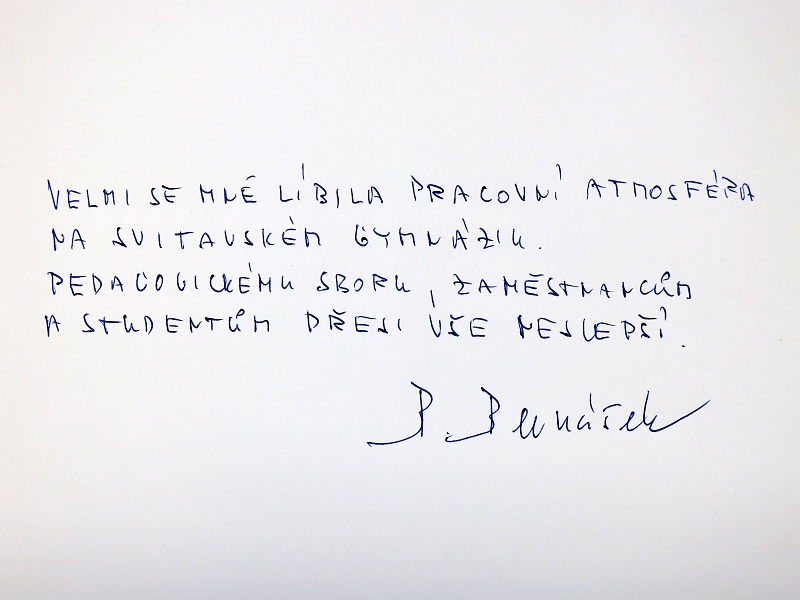 VELMI SE MNĚ LÍBILA PRACOVNÍ ATMOSFÉRA
NA SVITAVSKÉM GYMNÁZIU.
PEDAGOGICKÉMU SBORU, ZAMĚSTNANCŮM
A STUDENTŮM PŘEJI VŠE NEJLEPŠÍ.
B. Bernášek